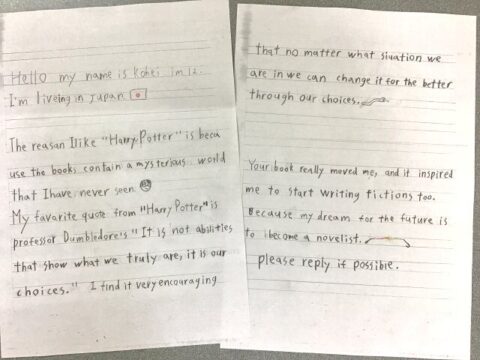 Hello my name is Kohei Im 12.
I'm liveing in Japan
The reasan I like "Harry Potter" is beca
use the books contain a mysterious world
that I have never seen
My favorite quote from "Harry Potter" is
professor Dumbledore's "It is not abilities
that show what we truly are, it is our
choices." I find it very encouraging
that no matter what siuation we
are in we can change it for the better
through our choices.
Your book really moved me, and it inspired
me to start writing fictions too.
Because my dream for the future is
to become a novelist.
please reply if possible.